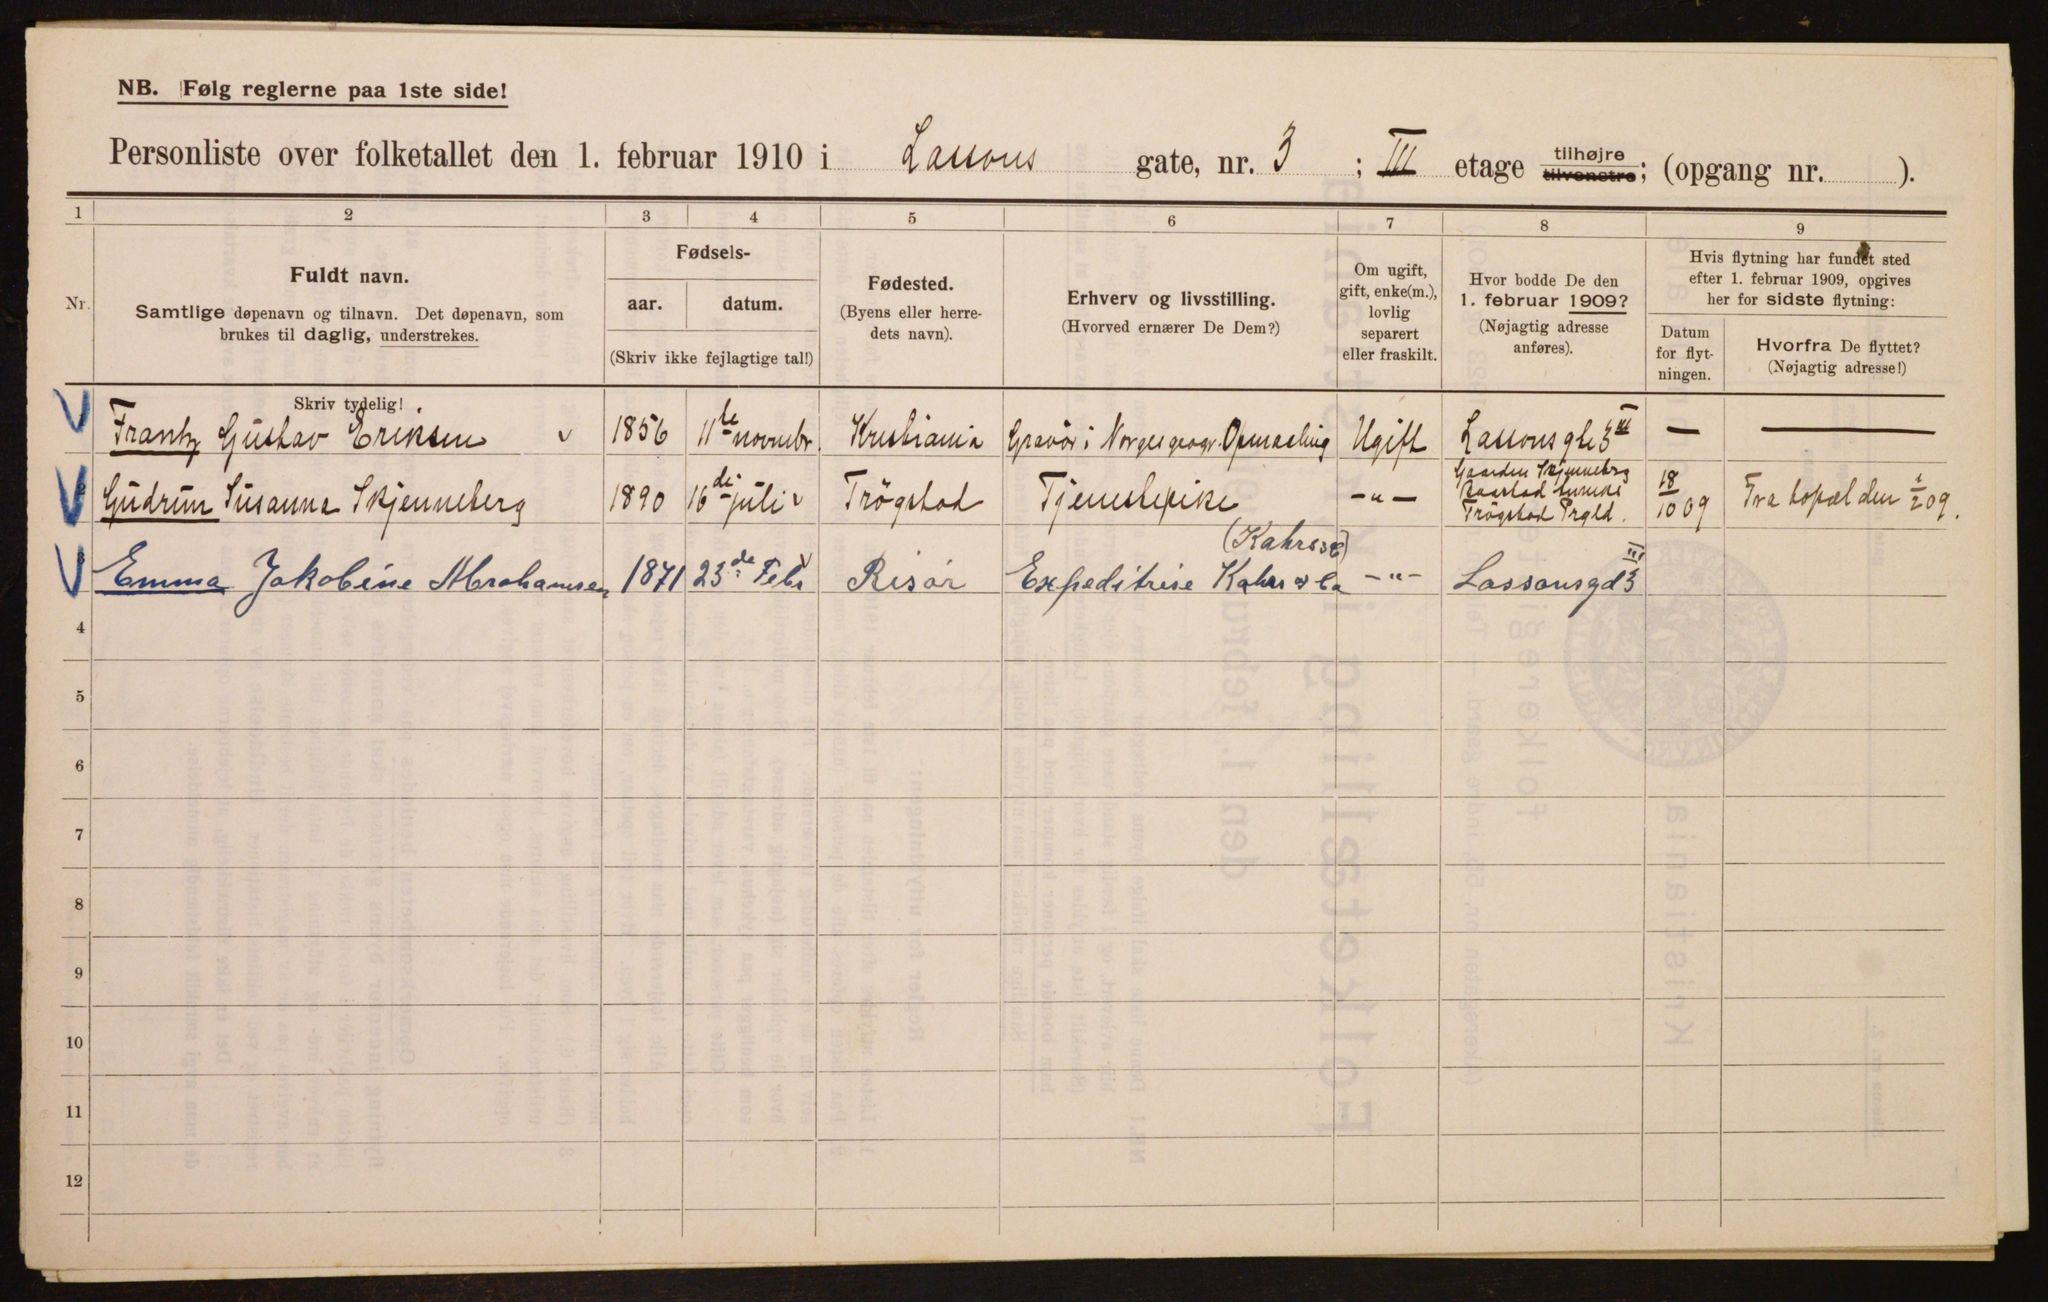 NB. Følg reglerne paa 1ste side!
Personliste over folketallet den 1. februar 1910 i Lassons gate, nr. 3; III etage tilhøjre tilvenstre; (opgang nr. ).
1 2 3 4 5 6 7 8 9
Nr.
Fuldt navn.
Samtlige døpenavn og tilnavn. Det døpenavn, som
brukes til daglig, understrekes.
Fødsels-
aar. datum.
(Skriv ikke fejlagtige tal!)
Fødested.
(Byens eller herre-
dets navn).
Erhverv og livsstilling.
(Hvorved ernærer De Dem?)
Om ugift,
gift, enke(m.),
lovlig
separert
eller fraskilt.
Hvor bodde De den
1. februar 1909?
(Nøjagtig adresse
anføres).
Hvis flytning har fundet sted
efter 1. februar 1909, opgives
her for sidste flytning:
Datum
for flyt-
ningen.
Hvorfra De flyttet?
(Nøjagtig adresse!)
Skriv tydelig!
Frantz Gustav Eriksen 1856 11te novmbr. Kristiania Gravør i Norges geogr. Opmaaling Ugift Lassonsgte 3 III — —
2 Gudrun Susanna Skjenneberg 1890 16de juli Trøgstad Tjenestepike —"— Gaarden Skjenneberg
Trøgstad Prgld. 18/10 09 Fra bopæl den 1/2 09.
(Kahrs &c)
3 Emma Jakobine Abrahamsen 1871 23de Febr Risør Expeditrise Kahrs & Co —"— Lassonsgd 3 III
4
5
6
7
8
9
10
11
12